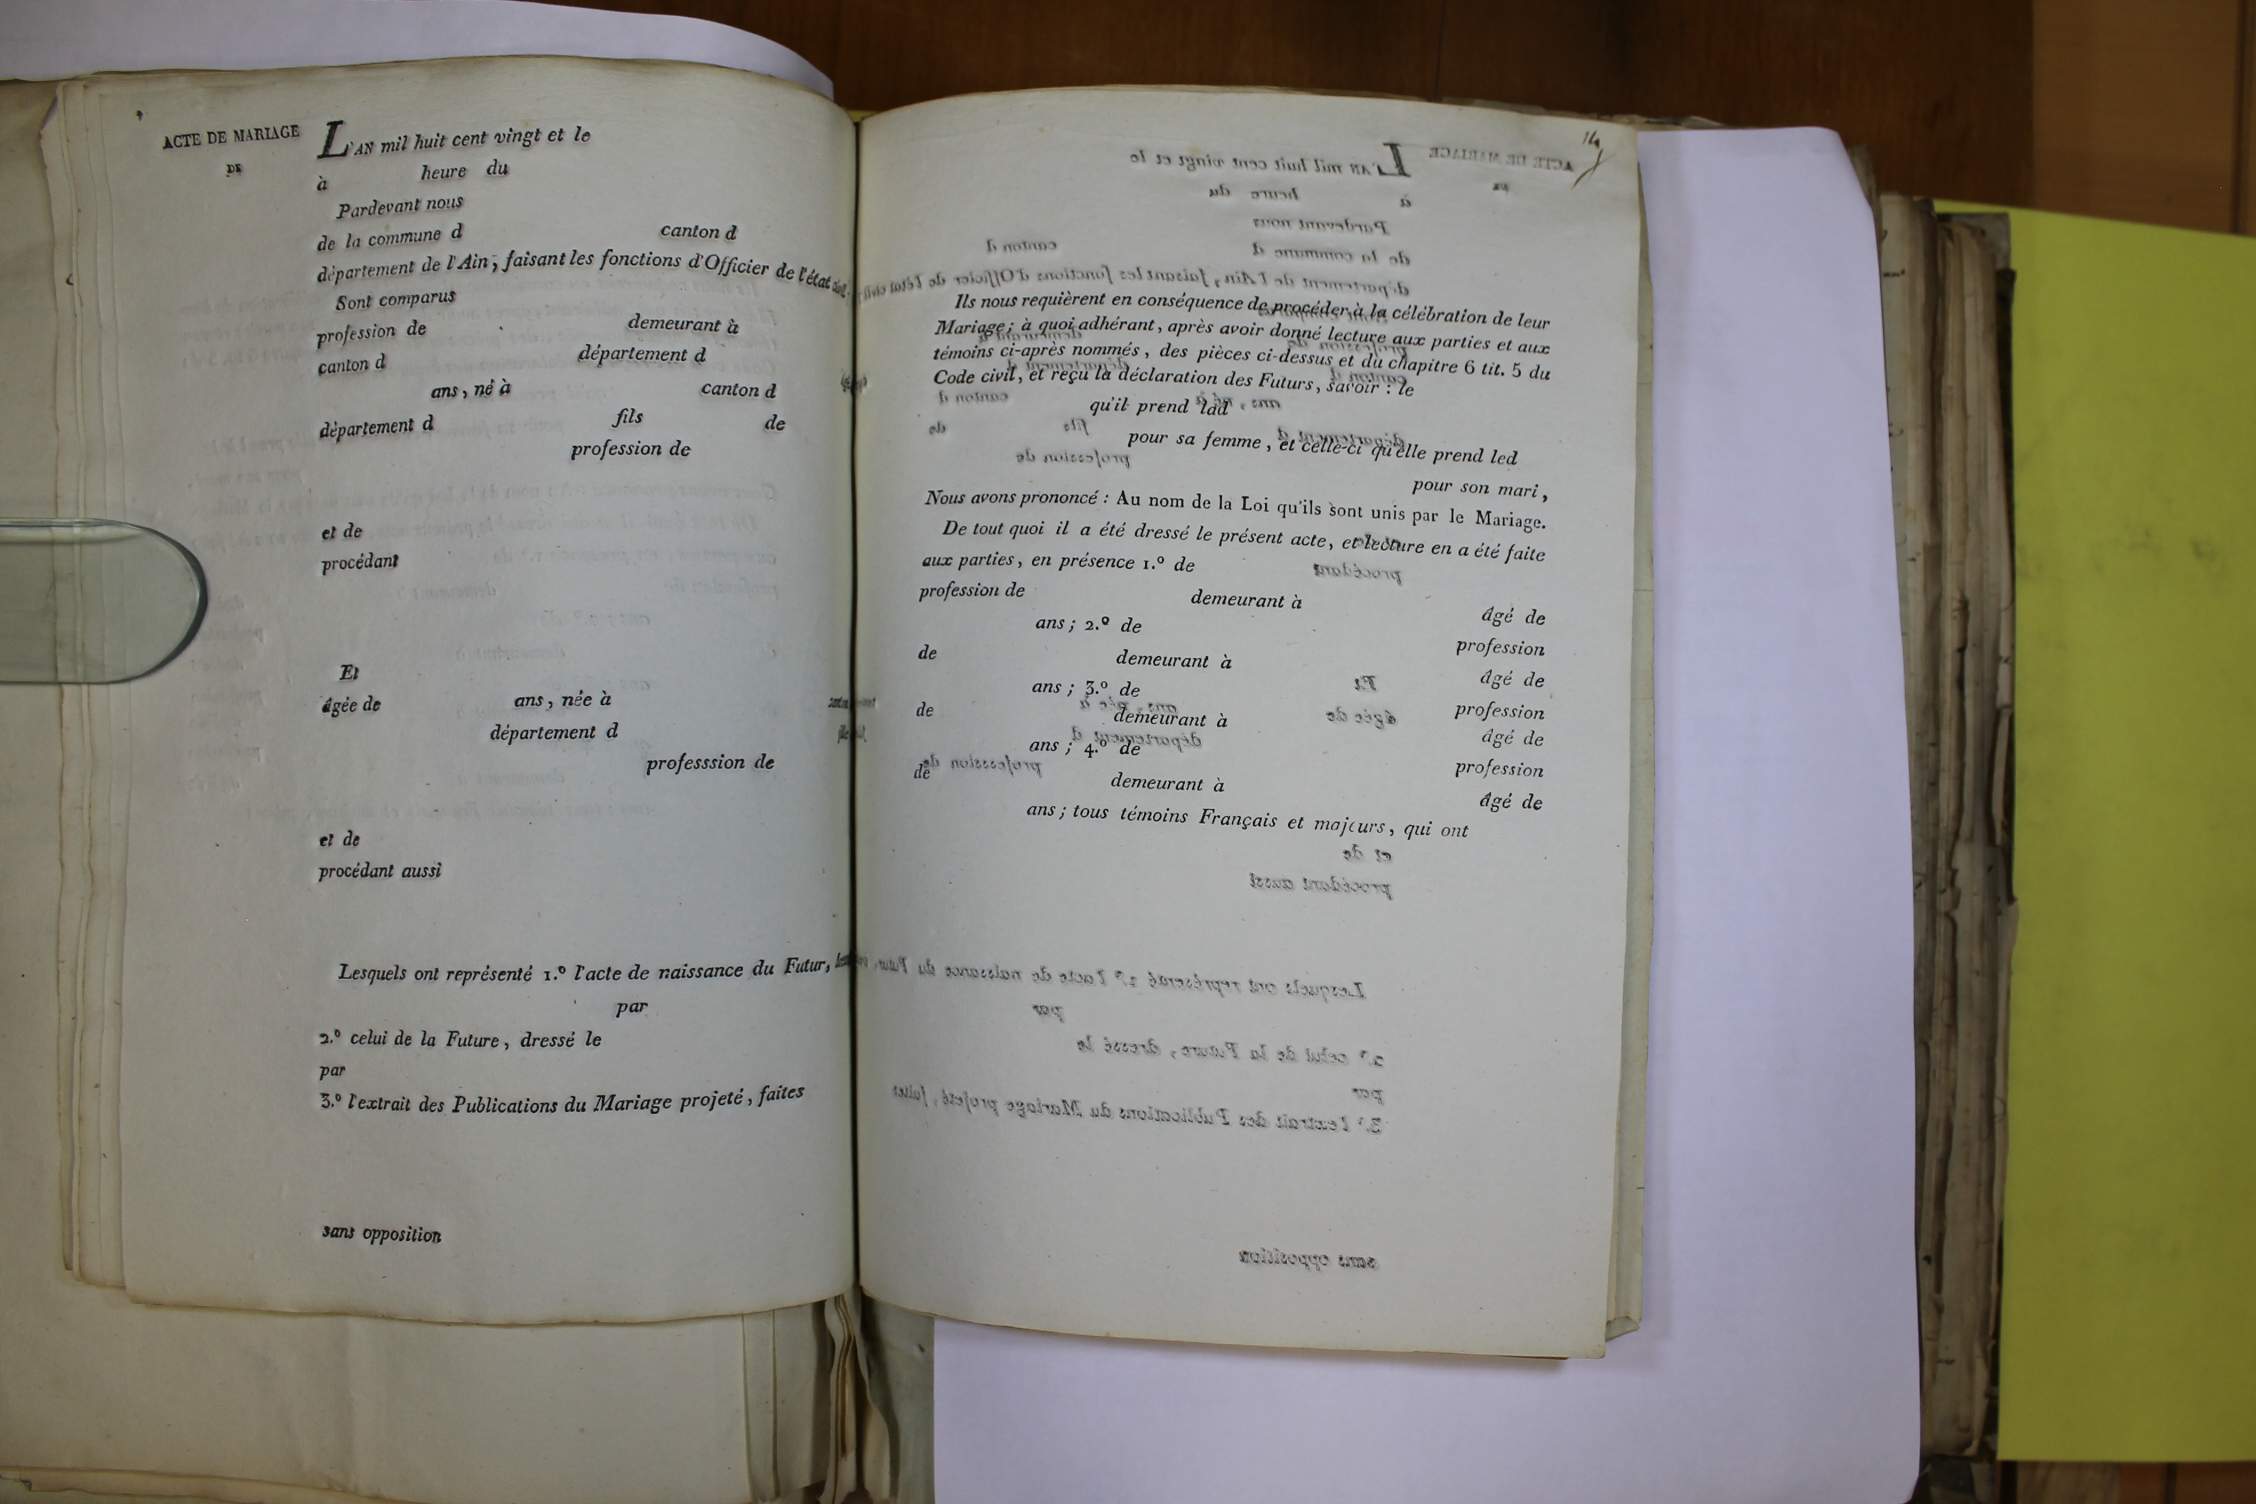 ACTE DE MARIAGE
DE
L'AN mil huit cent vingt et le
à heure du
Pardevant nous
de la commune d canton d
département de l'Ain, faisant les fonctions d'Officier de l'état civil.
Sont comparus
profession de demeurant à
canton d département d
ans, né à canton d
département d fils de
profession de
et de
procédant
Et
âgée de ans, née à
département d
professsion de
et de
procédant aussi
Lesquels ont représenté 1.º l'acte de naissance du Futur,
par
2.º celui de la Future, dressé le
par
3.º l'extrait des Publications du Mariage projeté, faites
sans opposition
Ils nous requièrent en conséquence de procéder à la célébration de leur
Mariage; à quoi adhérant, après avoir donné lecture aux parties et aux
témoins ci-après nommés, des pièces ci-dessus et du chapitre 6 tit. 5 du
Code civil, et reçu la déclaration des Futurs, savoir : le
qu'il prend lad
pour sa femme, et celle-ci qu'elle prend led
pour son mari,
Nous avons prononcé : Au nom de la Loi qu'ils sont unis par le Mariage.
De tout quoi il a été dressé le présent acte, et lecture en a été faite
aux parties, en présence 1.º de
profession de demeurant à âgé de
ans; 2.º de profession
de demeurant à âgé de
ans; 3.º de profession
de demeurant à âgé de
ans; 4.º de profession
de demeurant à âgé de
ans; tous témoins Français et majeurs, qui ont